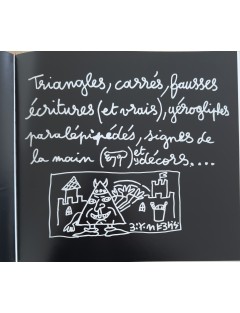 Triangles, carrés, fausses
écritures (et vrais), yérogliphes
paralépipédés, signes de
la main et décors, ...